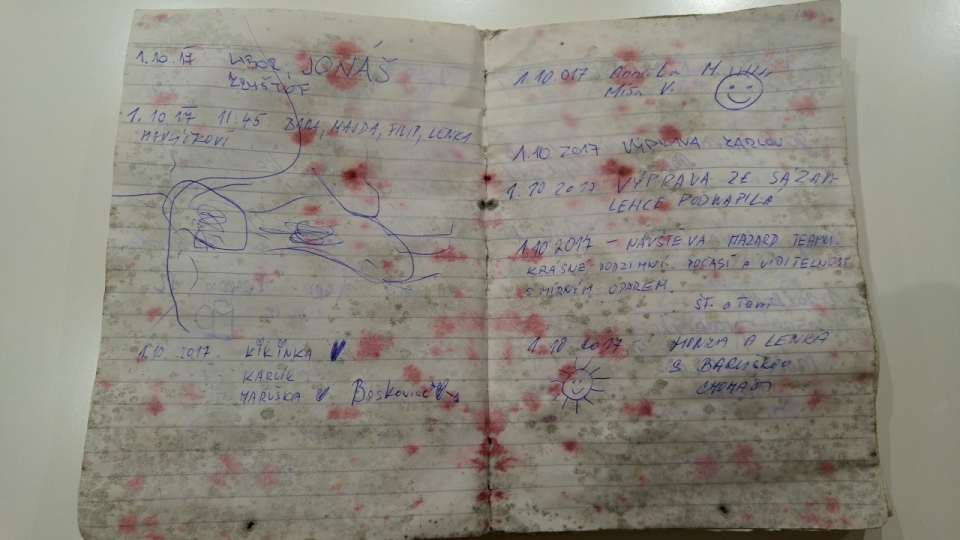 1.10.17 LIBOR, JONÁŠ
KRYŠTOF
1.10 17 11:45 BÁRA, MAJDA, FILIP, LENKA
HAVLÍČKOVI
1.10. 2017. KIKINKA
KARLÍK
MARUŠKA Boskovice
1.10 017 M.
Míša V.
1.10.2017 VÝPRAVA KARLOV
1.10 2017 VÝPRAVA ZE SÁZAV
LEHCE PODKAPILÁ
1.10 2017 - NÁVŠTEVA HAZARD TEAMU.
KRÁSNÉ PODZIMNÍ POČASÍ A VIDITELNOST
S MÍRNÝM OPAREM.
ŠT. a Tomi
1.10 2017 - HONZA A LENKA
S BARUŠKOU